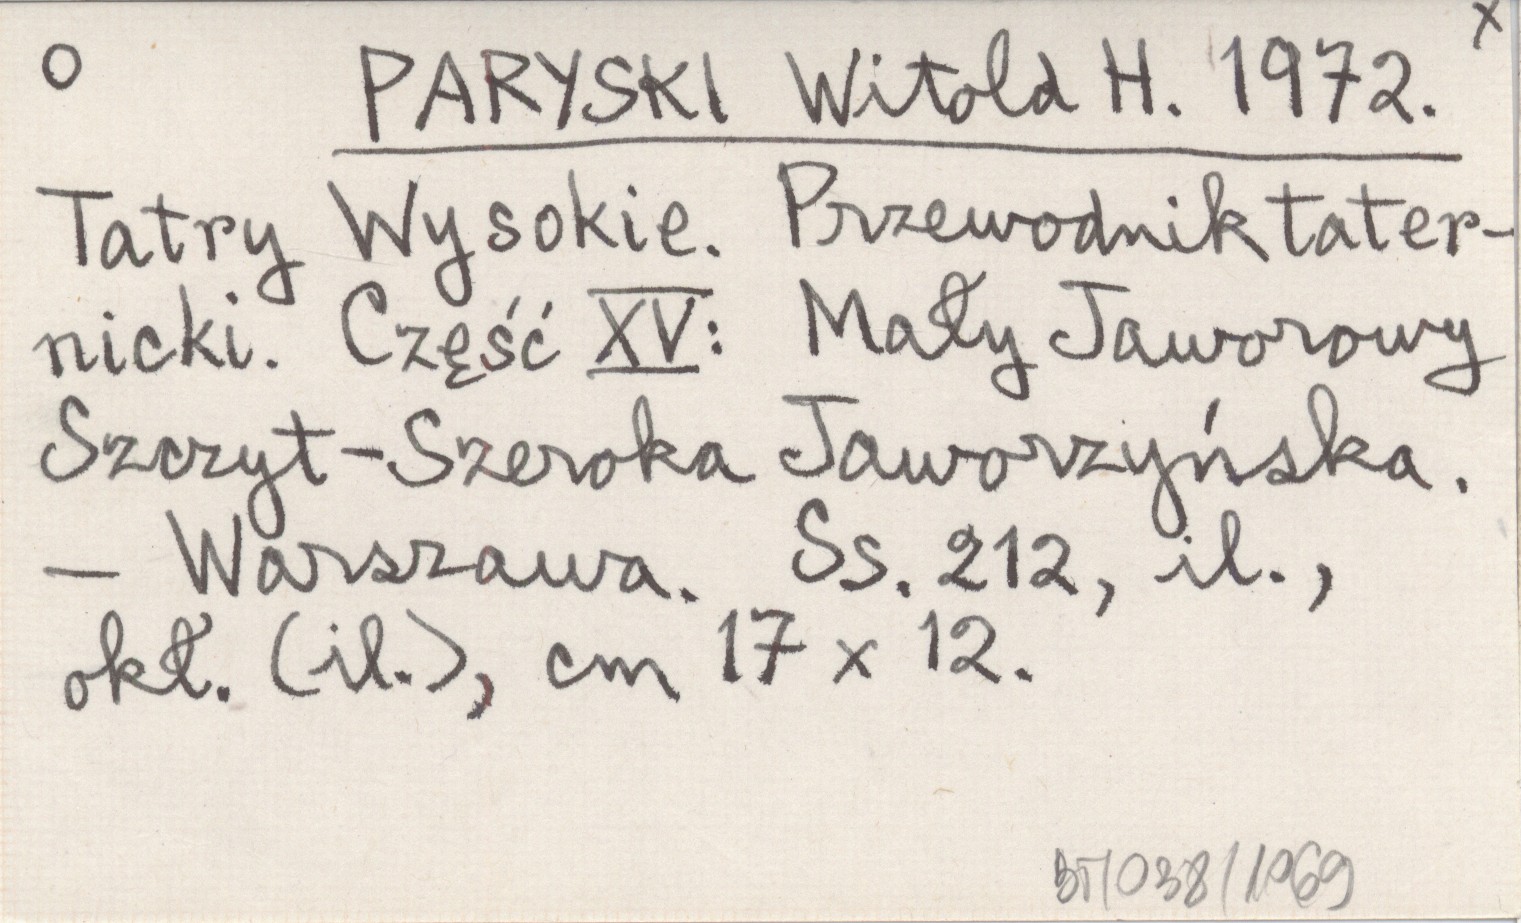 o PARYSKI Witold H. 1972. x
Tatry Wysokie. Przewodnik tater-
nicki. Część XV: Mały Jaworowy
Szczyt-Szeroka Jaworzyńska.
— Warszawa. Ss. 212, il.,
okł. (il.), cm 17 x 12.
BT/038/1969